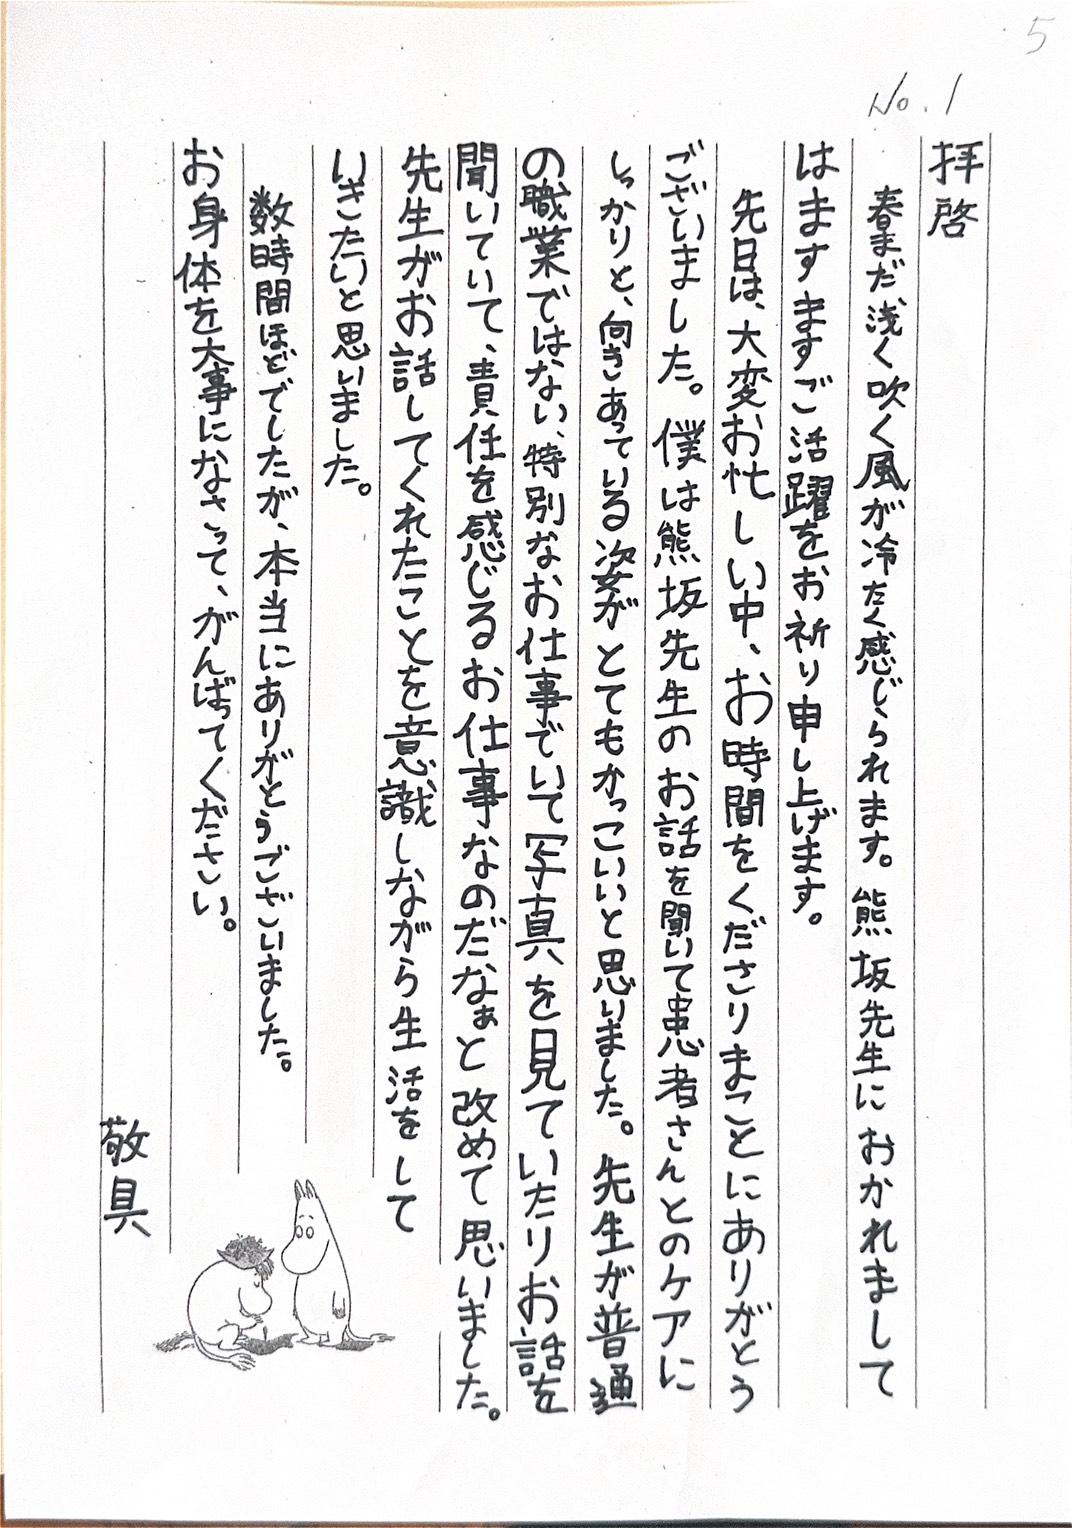 5
No.1
拝啓
春まだ浅く吹く風が冷たく感じられます。熊坂先生におかれまして
はますますご活躍をお祈り申し上げます。
先日は、大変お忙しい中、お時間をくださりまことにありがとう
ございました。僕は熊坂先生のお話を聞いて患者さんとのケアに
しっかりと、向きあっている姿がとてもかっこいいと思いました。先生が普通
の職業ではない、特別なお仕事でいて写真を見ていたりお話を
聞いていて、責任を感じるお仕事なのだなぁと改めて思いました。
先生がお話してくれたことを意識しながら生活をして
いきたいと思いました。
数時間ほどでしたが、本当にありがとうございました。
お身体を大事になさって、がんばってください。
敬具